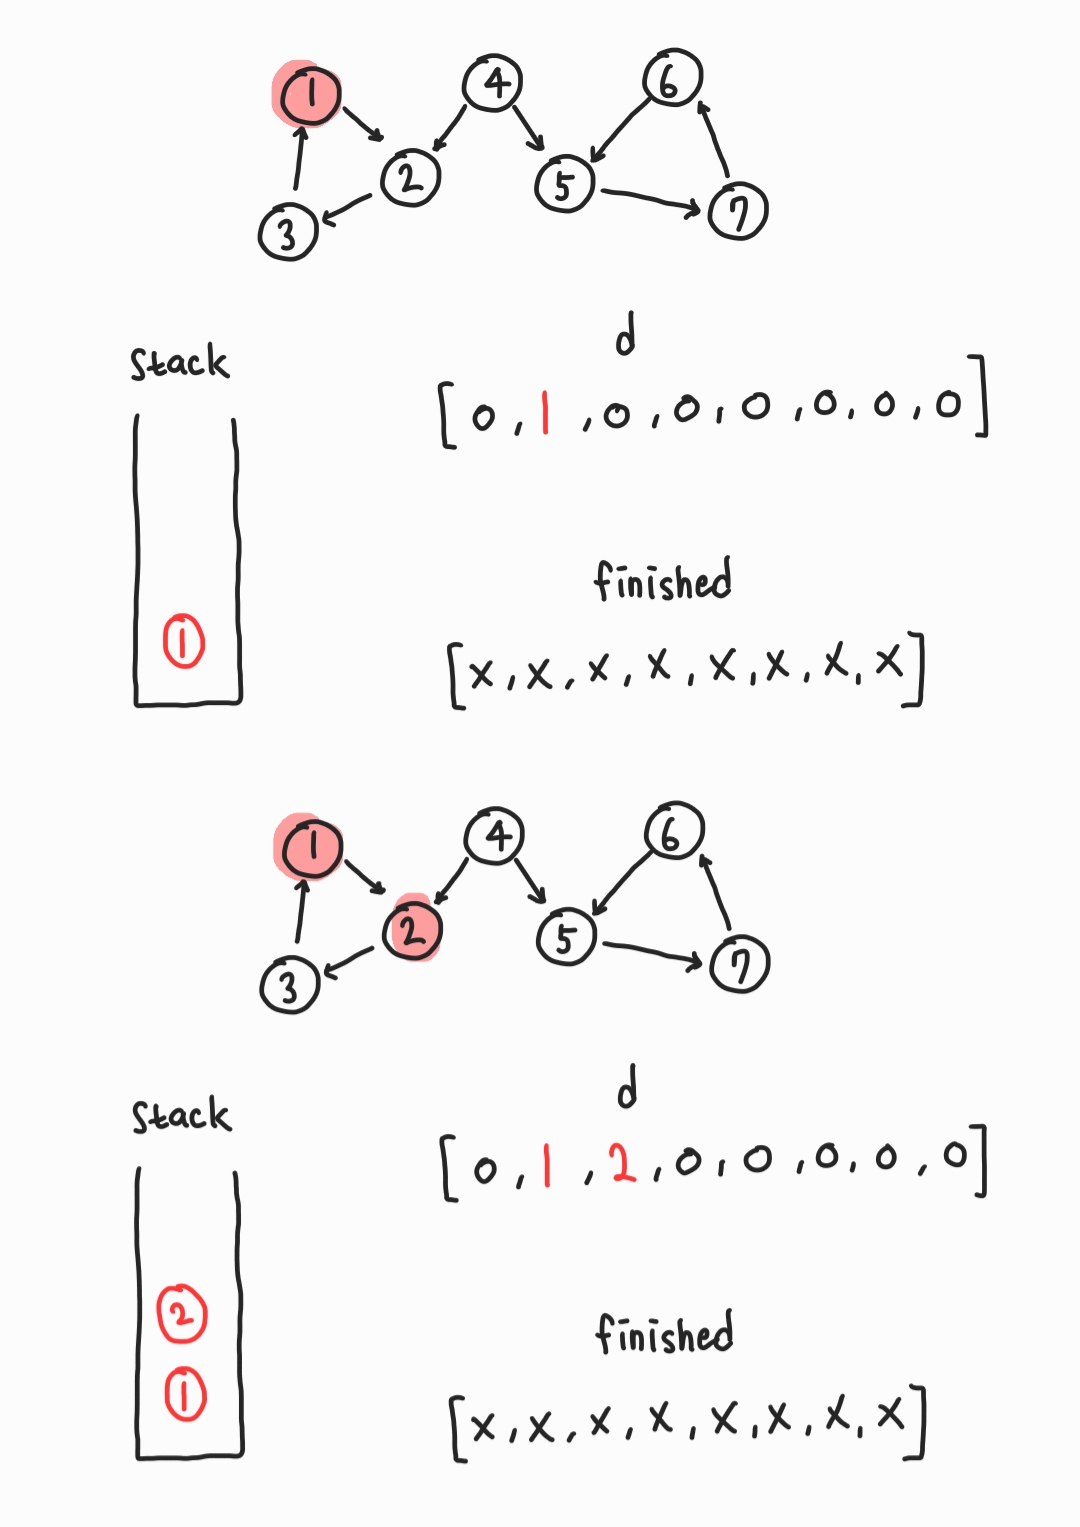 1 4 6
2 5 7
3
Stack
d
[0, 1, 0, 0, 0, 0, 0, 0]
finished
[x, x, x, x, x, x, x, x]
1
1 4 6
2 5 7
3
Stack
d
[0, 1, 2, 0, 0, 0, 0, 0]
finished
[x, x, x, x, x, x, x, x]
2
1